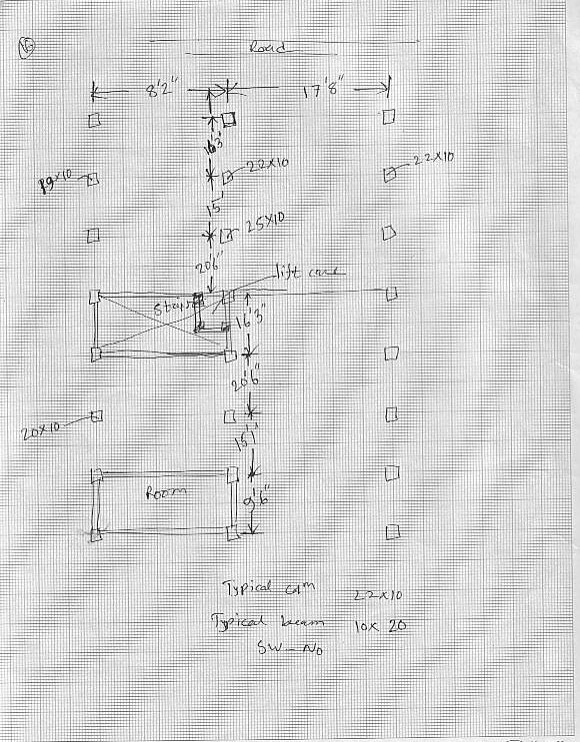 Road
8'2"
17'8"
16'3"
22x10
22x10
19x10
15'
25x10
20'6"
lift core
Stair
16'3"
20'6"
20x10
15'1"
Room
9'6"
Typical colm 22x10
Typical beam 10x20
SW - No